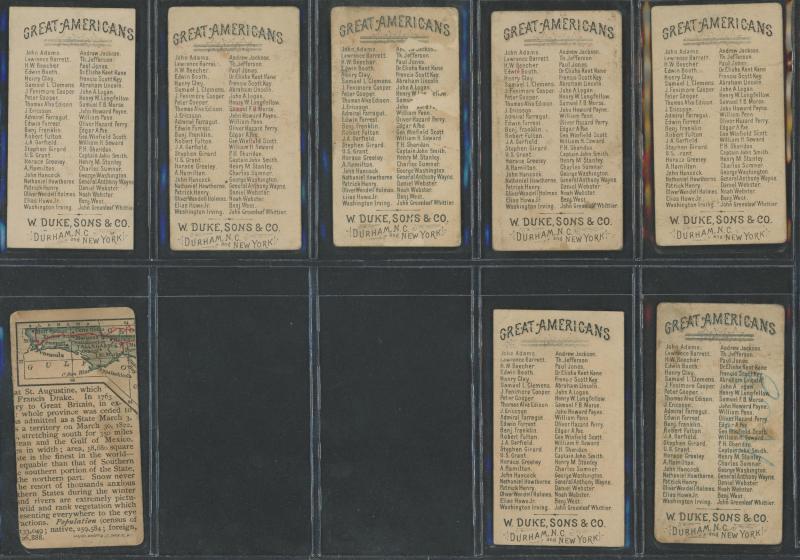 GREAT AMERICANS
John Adams. Andrew Jackson.
Lawrence Barrett. Th. Jefferson.
H.W. Beecher. Paul Jones.
Edwin Booth. Dr. Elisha Kent Kane
Henry Clay. Francis Scott Key.
Samuel L. Clemens. Abraham Lincoln.
J. Fenimore Cooper. John A. Logan
Peter Cooper. Henry W. Longfellow.
Thomas Alva Edison. Samuel F.B. Morse.
J. Ericsson. John Howard Payne.
Admiral Farragut. William Penn.
Edwin Forrest. Oliver Hazard Perry.
Benj. Franklin. Edgar A. Poe
Robert Fulton. Gen Winfield Scott
J.A. Garfield. William H. Seward
Stephen Girard. P.H. Sheridan.
U.S. Grant. Captain John Smith.
Horace Greeley. Henry M. Stanley.
A. Hamilton. Charles Sumner.
John Hancock George Washington
Nathaniel Hawthorne. General Anthony Wayne.
Patrick Henry. Daniel Webster.
Oliver Wendell Holmes. Noah Webster.
Elias Howe Jr. Benj. West.
Washington Irving. John Greenleaf Whittier.
W. DUKE, SONS & CO.
DURHAM, N.C. and NEW YORK.
GREAT AMERICANS
John Adams. Andrew Jackson.
Lawrence Barrett. Th. Jefferson.
H.W. Beecher. Paul Jones.
Edwin Booth. Dr. Elisha Kent Kane
Henry Clay. Francis Scott Key.
Samuel L. Clemens. Abraham Lincoln.
J. Fenimore Cooper. John A. Logan
Peter Cooper. Henry W. Longfellow.
Thomas Alva Edison. Samuel F.B. Morse.
J. Ericsson. John Howard Payne.
Admiral Farragut. William Penn.
Edwin Forrest. Oliver Hazard Perry.
Benj. Franklin. Edgar A. Poe
Robert Fulton. Gen Winfield Scott
J.A. Garfield. William H. Seward
Stephen Girard. P.H. Sheridan.
U.S. Grant. Captain John Smith.
Horace Greeley. Henry M. Stanley.
A. Hamilton. Charles Sumner.
John Hancock George Washington
Nathaniel Hawthorne. General Anthony Wayne.
Patrick Henry. Daniel Webster.
Oliver Wendell Holmes. Noah Webster.
Elias Howe Jr. Benj. West.
Washington Irving. John Greenleaf Whittier.
W. DUKE, SONS & CO.
DURHAM, N.C. and NEW YORK.
GREAT AMERICANS
John Adams. Jackson.
Lawrence Barrett. Th. Jefferson.
H.W. Beecher. Paul Jones.
Edwin Booth. Dr. Elisha Kent Kane
Henry Clay. Francis Scott Key.
Samuel L. Clemens. Abraham Lincoln.
J. Fenimore Cooper. John A. Logan
Peter Cooper. Henry W.
Thomas Alva Edison. Samuel F.B. Morse.
J. Ericsson. John Howard Payne.
Admiral Farragut. William Penn.
Edwin Forrest. Oliver Hazard Perry.
Benj. Franklin. Edgar A. Poe
Robert Fulton. Gen Winfield Scott
J.A. Garfield. William H. Seward
Stephen Girard. P.H. Sheridan.
U.S. Grant. Captain John Smith.
Horace Greeley. Henry M. Stanley.
A. Hamilton. Charles Sumner.
John Hancock George Washington
Nathaniel Hawthorne. General Anthony Wayne.
Patrick Henry. Daniel Webster.
Oliver Wendell Holmes. Noah Webster.
Elias Howe Jr. Benj. West.
Washington Irving. John Greenleaf Whittier.
W. DUKE, SONS & CO.
DURHAM, N.C. and NEW YORK.
GREAT AMERICANS
John Adams. Andrew Jackson.
Lawrence Barrett. Th. Jefferson.
H.W. Beecher. Paul Jones.
Edwin Booth. Dr. Elisha Kent Kane
Henry Clay. Francis Scott Key.
Samuel L. Clemens. Abraham Lincoln.
J. Fenimore Cooper. John A. Logan
Peter Cooper. Henry W. Longfellow.
Thomas Alva Edison. Samuel F.B. Morse.
J. Ericsson. John Howard Payne.
Admiral Farragut. William Penn.
Edwin Forrest. Oliver Hazard Perry.
Benj. Franklin. Edgar A. Poe
Robert Fulton. Gen Winfield Scott
J.A. Garfield. William H. Seward
Stephen Girard. P.H. Sheridan.
U.S. Grant. Captain John Smith.
Horace Greeley. Henry M. Stanley.
A. Hamilton. Charles Sumner.
John Hancock George Washington
Nathaniel Hawthorne. General Anthony Wayne.
Patrick Henry. Daniel Webster.
Oliver Wendell Holmes. Noah Webster.
Elias Howe Jr. Benj. West.
Washington Irving. John Greenleaf Whittier.
W. DUKE, SONS & CO.
DURHAM, N.C. and NEW YORK.
GREAT AMERICANS
John Adams. Andrew Jackson.
Lawrence Barrett. Th. Jefferson.
H.W. Beecher. Paul Jones.
Edwin Booth. Dr. Elisha Kent Kane
Henry Clay. Francis Scott Key.
Samuel L. Clemens. Abraham Lincoln.
J. Fenimore Cooper. John A. Logan
Peter Cooper. Henry W. Longfellow.
Thomas Alva Edison. Samuel F.B. Morse.
J. Ericsson. John Howard Payne.
Admiral Farragut. William Penn.
Edwin Forrest. Oliver Hazard Perry.
Benj. Franklin. Edgar A. Poe
Robert Fulton. Gen Winfield Scott
J.A. Garfield. William H. Seward
Stephen Girard. P.H. Sheridan.
U.S. Grant. Captain John Smith.
Horace Greeley. Henry M. Stanley.
A. Hamilton. Charles Sumner.
John Hancock George Washington
Nathaniel Hawthorne. General Anthony Wayne.
Patrick Henry. Daniel Webster.
Oliver Wendell Holmes. Noah Webster.
Elias Howe Jr. Benj. West.
Washington Irving. John Greenleaf Whittier.
W. DUKE, SONS & CO.
DURHAM, N.C. and NEW YORK.
GULF O
at St. Augustine, which
Francis Drake. In 1763
ry to Great Britain, in ex-
whole province was ceded to
as admitted as a State March 3,
a territory on March 30, 1822.
, stretching south for 350 miles
ean and the Gulf of Mexico.
es in width; area, 58,680 square
te is the finest in the world—
equable than that of Southern
e southern portion of the State,
the northern part. Snow never
the resort of thousands anxious
rthern States during the winter
and rivers are extremely pictu-
wild and rank vegetation which
esenting everywhere to the eye
actions. Population (census of
native, 259,584; foreign,
GREAT AMERICANS
John Adams. Andrew Jackson.
Lawrence Barrett. Th. Jefferson.
H.W. Beecher. Paul Jones.
Edwin Booth. Dr. Elisha Kent Kane
Henry Clay. Francis Scott Key.
Samuel L. Clemens. Abraham Lincoln.
J. Fenimore Cooper. John A. Logan
Peter Cooper. Henry W. Longfellow.
Thomas Alva Edison. Samuel F.B. Morse.
J. Ericsson. John Howard Payne.
Admiral Farragut. William Penn.
Edwin Forrest. Oliver Hazard Perry.
Benj. Franklin. Edgar A. Poe
Robert Fulton. Gen Winfield Scott
J.A. Garfield. William H. Seward
Stephen Girard. P.H. Sheridan.
U.S. Grant. Captain John Smith.
Horace Greeley Henry M. Stanley.
A. Hamilton. Charles Sumner.
John Hancock George Washington.
Nathaniel Hawthorne. General Anthony Wayne.
Patrick Henry. Daniel Webster.
Oliver Wendell Holmes. Noah Webster.
Elias Howe Jr. Benj. West.
Washington Irving. John Greenleaf Whittier.
W. DUKE, SONS & CO.
DURHAM, N.C. and NEW YORK.
GREAT AMERICANS
John Adams. Andrew Jackson.
Lawrence Barrett. Th. Jefferson.
H.W. Beecher. Paul Jones.
Edwin Booth. Dr. Elisha Kent Kane
Henry Clay. Francis Scott Key.
Samuel L. Clemens. Abraham Lincoln
J. Fenimore Cooper. John A. Logan
Peter Cooper. Henry W. Longfellow.
Thomas Alva Edison. Samuel F.B. Morse.
J. Ericsson. John Howard Payne.
Admiral Farragut. William Penn.
Edwin Forrest. Oliver Hazard Perry.
Benj. Franklin. Edgar A. Poe
Robert Fulton. Gen Winfield Scott
J.A. Garfield. William H. Seward
Stephen Girard. P.H. Sheridan.
U.S. Grant. Captain John Smith.
Horace Greeley. Henry M. Stanley.
A. Hamilton. Charles Sumner.
John Hancock George Washington
Nathaniel Hawthorne. General Anthony Wayne.
Patrick Henry. Daniel Webster.
Oliver Wendell Holmes. Noah Webster.
Elias Howe Jr. Benj. West.
Washington Irving. John Greenleaf Whittier.
W. DUKE, SONS & CO.
DURHAM, N.C. and NEW YORK.